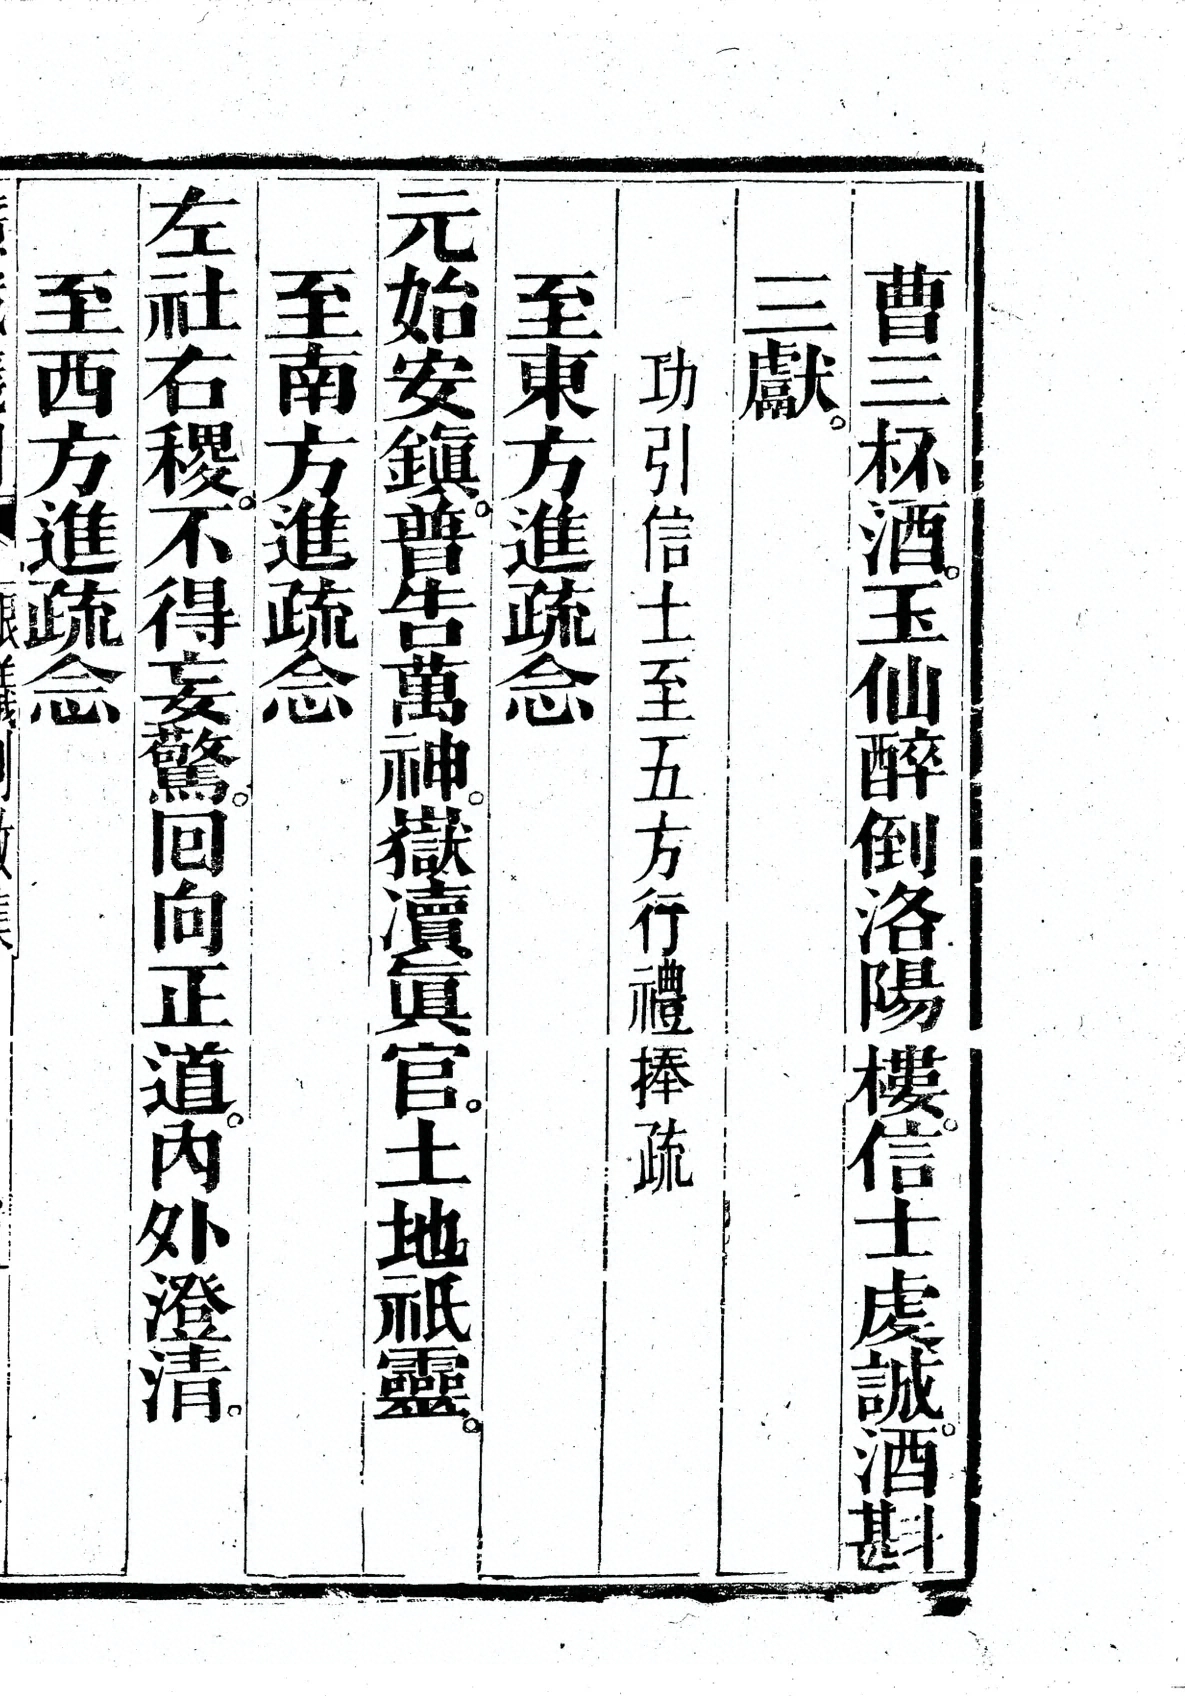 曹三杯酒。玉仙醉倒洛陽樓。信士虔誠。酒斟
三獻。
功引信士至五方行禮捧疏
至東方進疏念
元始安鎭。普告萬神。嶽瀆眞官。土地祇靈。
至南方進疏念
左社右稷。不得妄驚。回向正道。內外澄清。
至西方進疏念